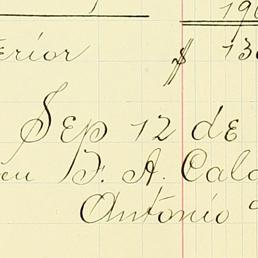 190
erior $ 130
Sep 12 de
F. A. Cald
Antonio